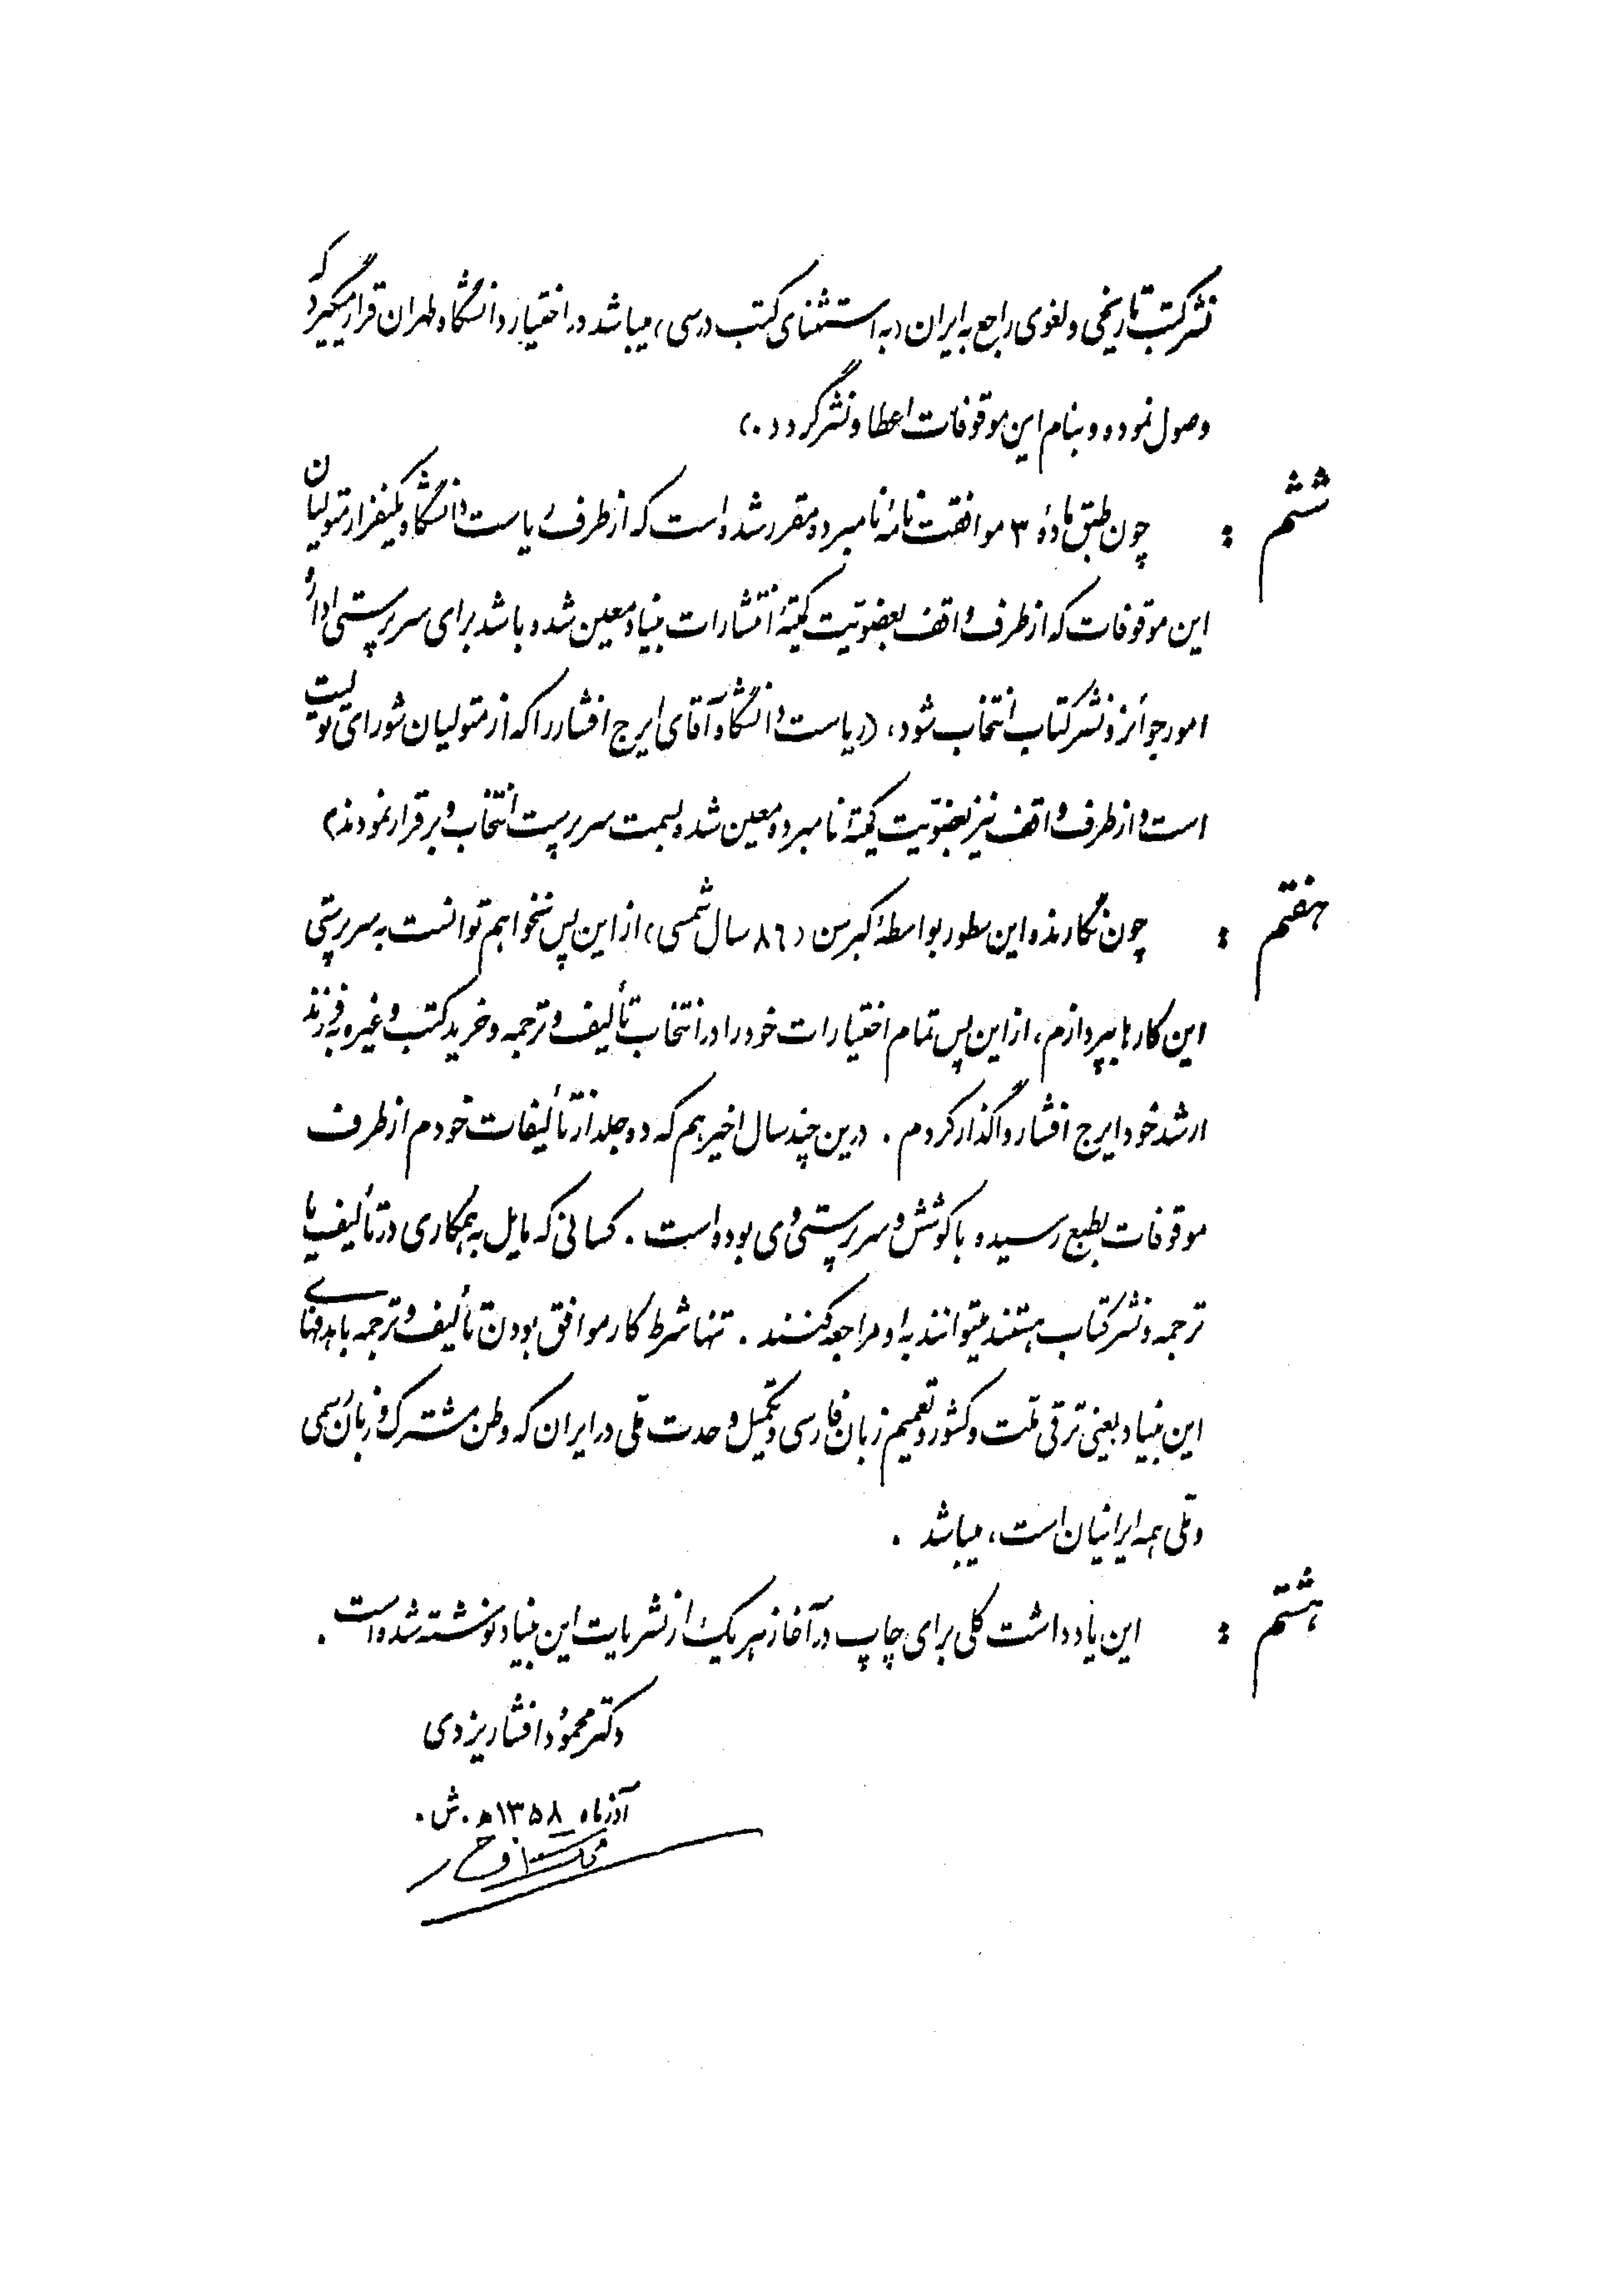 نشر کتب تاریخی و لغوی راجع به ایران (به استثنای کتب درسی) میباشد در اختیار دانشگاه طهران قرار میگیرد که
وصول نموده و بنام این موقوفات اعطا و نشر گردد.)
ششم : چون طبق مادهٔ ۳ موافقت نامهٔ نامبرده مقرر شده است که از طرف ریاست دانشگاه یکنفر از متولیان
این موقوفات که از طرف واقف بعضویت کمیتهٔ انتشارات بنیاد معین شده باشد برای سرپرستی ادارهٔ
امور جوائز و نشر کتاب انتخاب شود، (ریاست دانشگاه آقای ایرج افشار را که از متولیان شورای تولیت
است و از طرف واقف نیز بعضویت کمیتهٔ نامبرده معین شده بسمت سرپرست انتخاب و برقرار نمودند)
هفتم : چون نگارنده این سطور بواسطهٔ کبر سن (۸۶ سال شمسی) از این پس نخواهم توانست به سرپرستی
این کارها بپردازم، از این پس تمام اختیارات خود را در انتخاب تألیف و ترجمه و خرید کتب و غیره به فرزند
ارشد خود ایرج افشار واگذار کردم. درین چند سال اخیر هم که دو جلد از تألیفات خودم از طرف
موقوفات بطبع رسیده با کوشش و سرپرستی وی بوده است. کسانی که مایل به همکاری در تألیف یا
ترجمه و نشر کتاب هستند میتوانند به او مراجعه کنند. تنها شرط کار موافق بودن تألیف و ترجمه با هدفهای
این بنیاد یعنی ترقی ملت و کشور و تعمیم زبان فارسی و تکمیل وحدت ملی در ایران که وطن مشترک و زبان رسمی
و ملی همه ایرانیان است، میباشد.
هشتم : این یادداشت کلی برای چاپ در آغاز هر یک از نشریات این بنیاد نوشته شده است.
دکتر محمود افشار یزدی
آذرماه ۱۳۵۸ ه.ش.